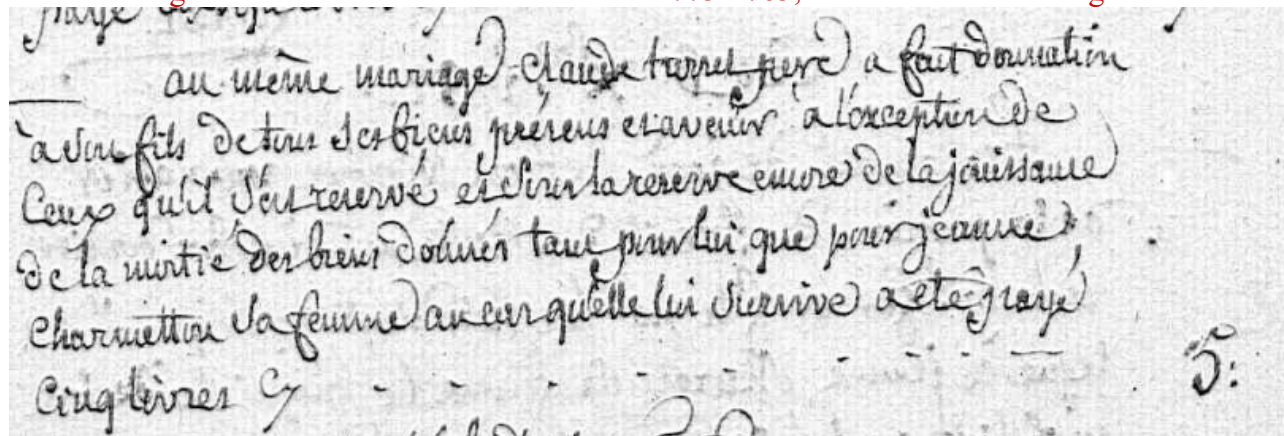 au même mariage Claude turrel pere a fait donnation
à son fils de tous ses biens présens et avenir a l'exception de
Ceux qu'il s'est reservé et sous la reserve encore de la jouissance
de la moitié des biens donnés tant pour lui que pour jeanne
Charmetton sa femme au cas qu'elle lui survive a eté payé
Cinq livres Cy - - - - - - - 5: